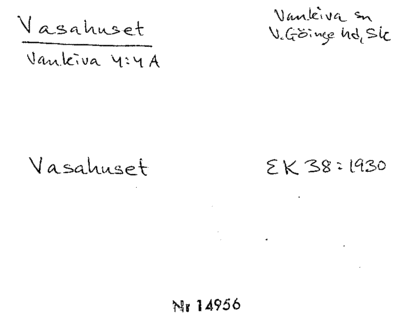 Vasahuset
Vankiva 4:4A
Vankiva sn
V. Göinge hd, Sk
Vasahuset
EK 38:1930
Nr 14956